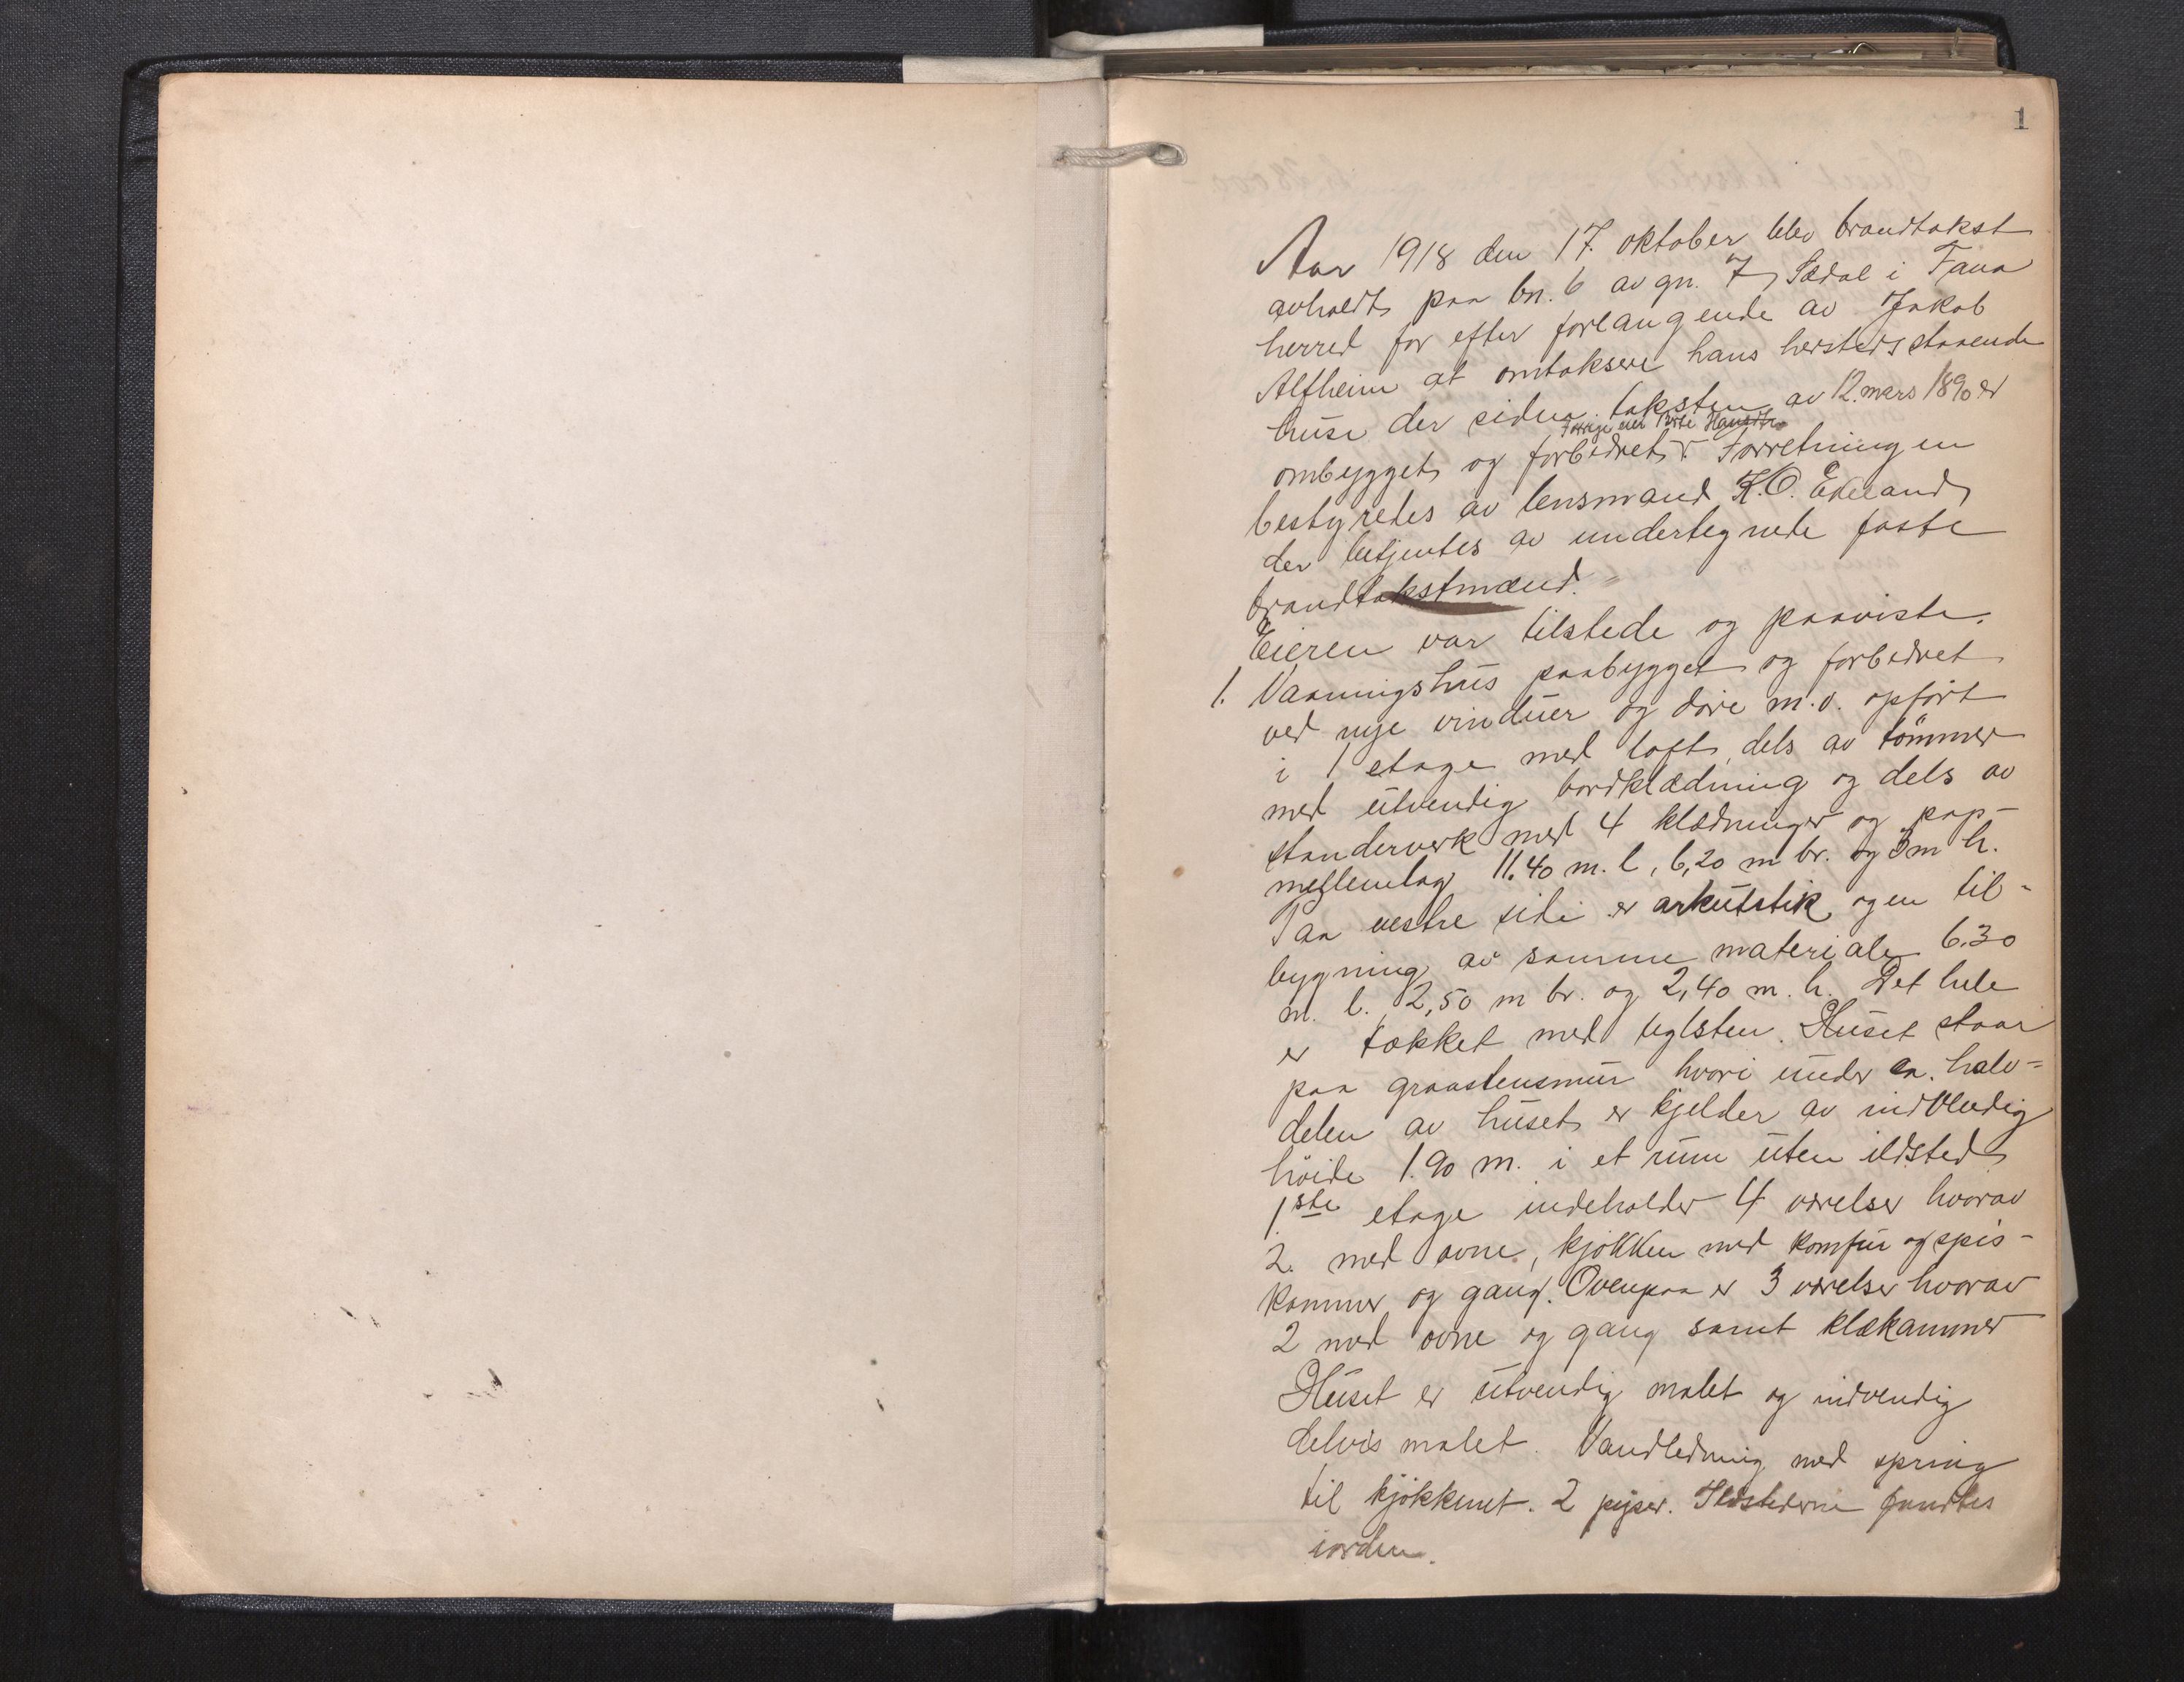 1
Aar 1918 den 17. oktober blev brandtakst
avholdt paa bn. 6 av gn. 7 Sædal i Fana
herred for efter forlangende av Jakob
Alfheim at omtaksere hans hersteds staaende
huse der siden taksten av 12. mars 1890 er
Forrige eier Brite Hansdtr
ombygget og forbedret. Forretningen
bestyredes av lensmand K. O. Ekeland
der betjentes av undertegnede faste
brandtakstmænd.
Eieren var tilstede og paaviste.
1. Vaaningshus paabygget og forbedret
ved nye vinduer og döre m.v. opfört
i 1 etage med loft, dels av tömmer
med utvendig bordklædning og dels av
standerverk med 4 klædninger og pap-
mellemlag 11.40 m. l, 6,20 m br. og 3 m h.
Paa vestre side er arkutstik og en til-
bygning av samme materiale 6.30
m. l. 2,50 m br. og 2,40 m. h. Det hele
er tækket med teglsten. Huset staar
paa graastensmur hvori under ca. halv-
delen av huset er kjelder av indvendig
höide 1.90 m. i et rum uten ildsted
1ste etage indeholder 4 værelser hvorav
2 med ovne, kjökken med komfur og spis-
kammer og gang. Ovenpaa er 3 værelser hvorav
2 med ovne og gang samt klækammer
Huset er utvendig malet og indvendig
delvis malet. Vandledning med spring
til kjökkenet. 2 piper. Ildstederne fandtes
iorden.